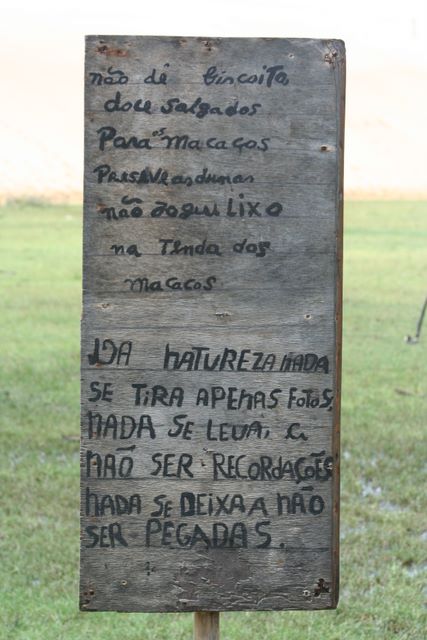 não dê biscoito
doce salgados
Para os macacos
PRESEVE as dunas
não jogue LIXO
na TENDA dos
macacos
DA NATUREZA NADA
SE TIRA APENAS FOTOS,
NADA SE LEVA, A
NÃO SER RECORDAÇÕES
NADA SE DEIXA A NÃO
SER PEGADAS.